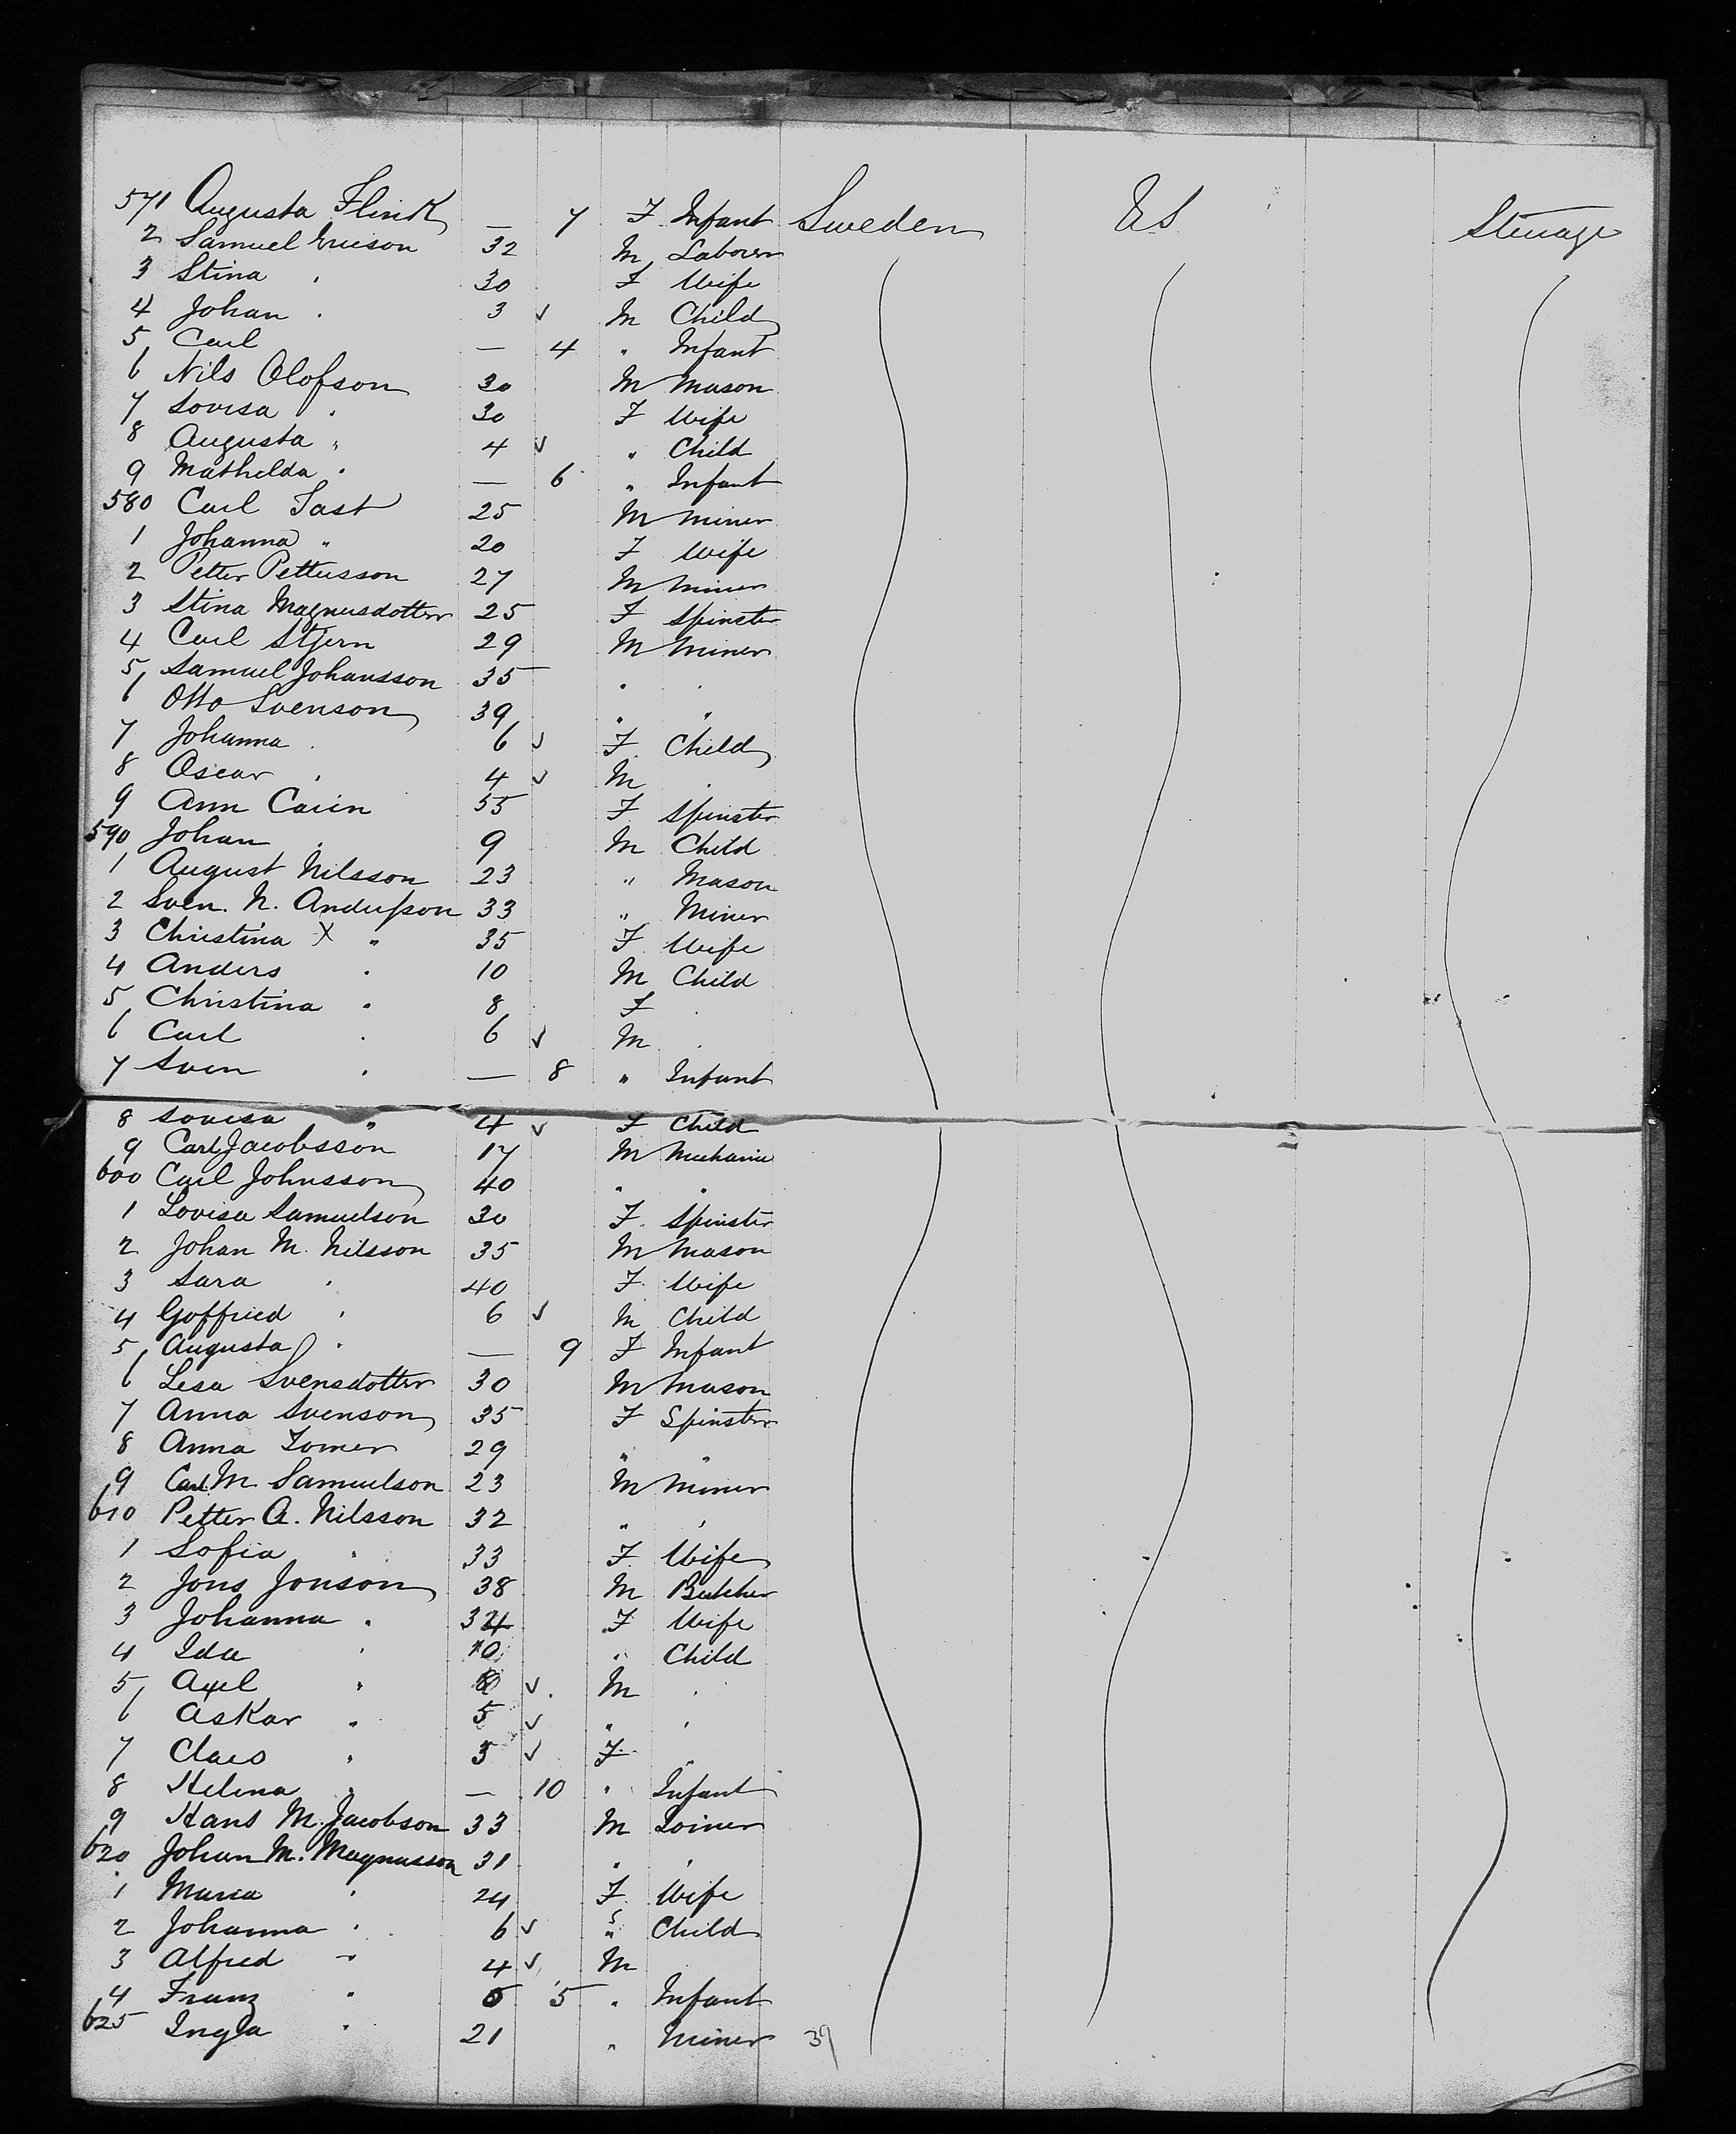 571 Augusta Flink — 7 F Infant Sweden US Steerage
2 Samuel Ericson 32 M Laborer
3 Stina " 30 F Wife
4 Johan " 3 ✓ M Child
5 Carl — 4 " Infant
6 Nils Olofson 30 M Mason
7 Lovisa " 30 F Wife
8 Augusta " 4 ✓ " Child
9 Mathilda " — 6 " Infant
580 Carl Fast 25 M Miner
1 Johanna " 20 F Wife
2 Petter Pettersson 27 M Miner
3 Stina Magnusdotter 25 F Spinster
4 Carl Stjern 29 M Miner
5 Samuel Johansson 35 " "
6 Otto Svenson 39 " "
7 Johanna " 6 ✓ F Child
8 Oscar " 4 ✓ M "
9 Ann Carin 55 F Spinster
590 Johan " 9 M Child
1 August Nilsson 23 " Mason
2 Sven N. Andersson 33 " Miner
3 Christina X " 35 F Wife
4 Anders " 10 M Child
5 Christina " 8 F "
6 Carl " 6 ✓ M "
7 Sven " — 8 " Infant
8 Lovisa " 4 ✓ F Child
9 Carl Jacobsson 17 M Mechanic
600 Carl Johnsson 40 " "
1 Lovisa Samuelson 30 F Spinster
2 Johan M. Nilsson 35 M Mason
3 Sara " 40 F Wife
4 Goffried " 6 ✓ M Child
5 Augusta " — 9 F Infant
6 Lesa Svensdotter 30 M Mason
7 Anna Svenson 35 F Spinster
8 Anna Tomer 29 " "
9 Carl M Samuelson 23 M Miner
610 Petter A. Nilsson 32 " "
1 Sofia " 33 F Wife
2 Jons Jonson 38 M Butcher
3 Johanna " 34 F Wife
4 Ida " 10 " Child
5 Axel " 8 ✓ M "
6 Askar " 5 ✓ " "
7 Claes " 3 ✓ F "
8 Helena " — 10 " Infant
9 Hans M. Jacobson 33 M Joiner
620 Johan M. Magnusson 31 " "
1 Maria " 24 F Wife
2 Johanna " 6 ✓ " Child
3 Alfred " 4 ✓ M
4 Franz " 0 5 " Infant
625 Ingla " 21 " Miner 39